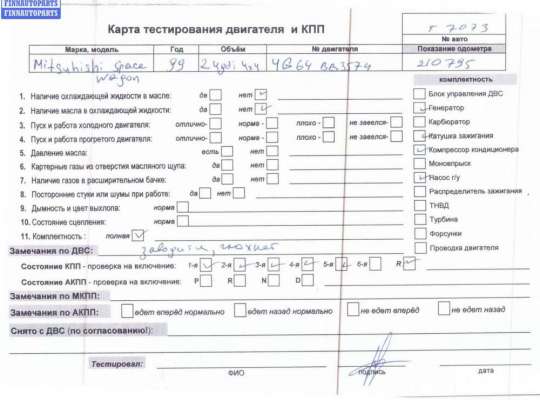 FINNAUTOPARTS
Карта тестирования двигателя и КПП
т 7073
№ авто
Марка, модель Год Объём № двигателя Показание одометра
Mitsubishi Grace 99 2.4gdi 4x4 4G64 BB3574 210795
wagon
комплектность
1. Наличие охлаждающей жидкости в масле: да нет
2. Наличие масла в охлаждающей жидкости: да нет
3. Пуск и работа холодного двигателя: отлично- норма - плохо - не завелся-
4. Пуск и работа прогретого двигателя: отлично- норма - плохо - не завелся-
5. Давление масла: есть нет
6. Картерные газы из отверстия масляного щупа: да нет
7. Наличие газов в расширительном бачке: да нет
8. Посторонние стуки или шумы при работе: да нет
9. Дымность и цвет выхлопа: норма
10. Состояние сцепления: норма
11. Комплектность : полная
Блок управления ДВС
Генератор
Карбюратор
Катушка зажигания
Компрессор кондиционера
Моновпрыск
Насос г/у
Распределитель зажигания
ТНВД
Турбина
Форсунки
Проводка двигателя
Замечания по ДВС: заводится, глохнет
Состояние КПП - проверка на включение: 1-я 2-я 3-я 4-я 5-я 6-я R
Состояние АКПП - проверка на включение: P R N D
Замечания по МКПП:
Замечания по АКПП: едет вперёд нормально едет назад нормально не едет вперёд не едет назад
Снято с ДВС (по согласованию!):
Тестировал:
ФИО подпись дата